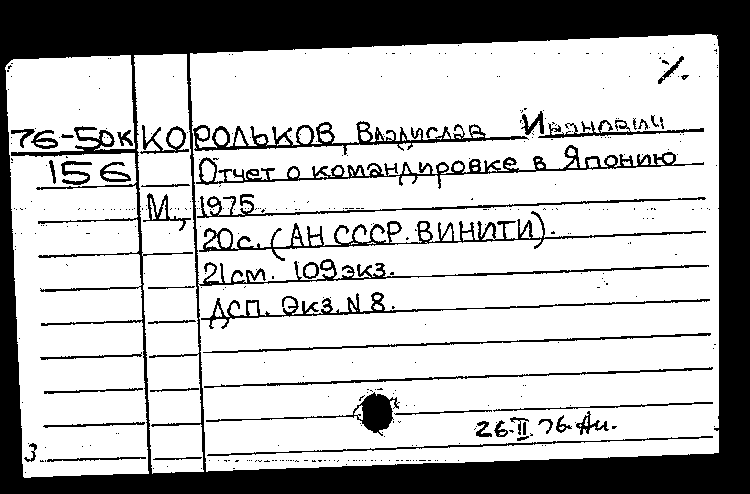 76-50К КОРОЛЬКОВ, Владислав Иванович
156 Отчет о командировке в Японию
М., 1975.
20с. (АН СССР. ВИНИТИ).
21см. 109экз.
ДСП. Экз. N 8.
26.II.76.
3